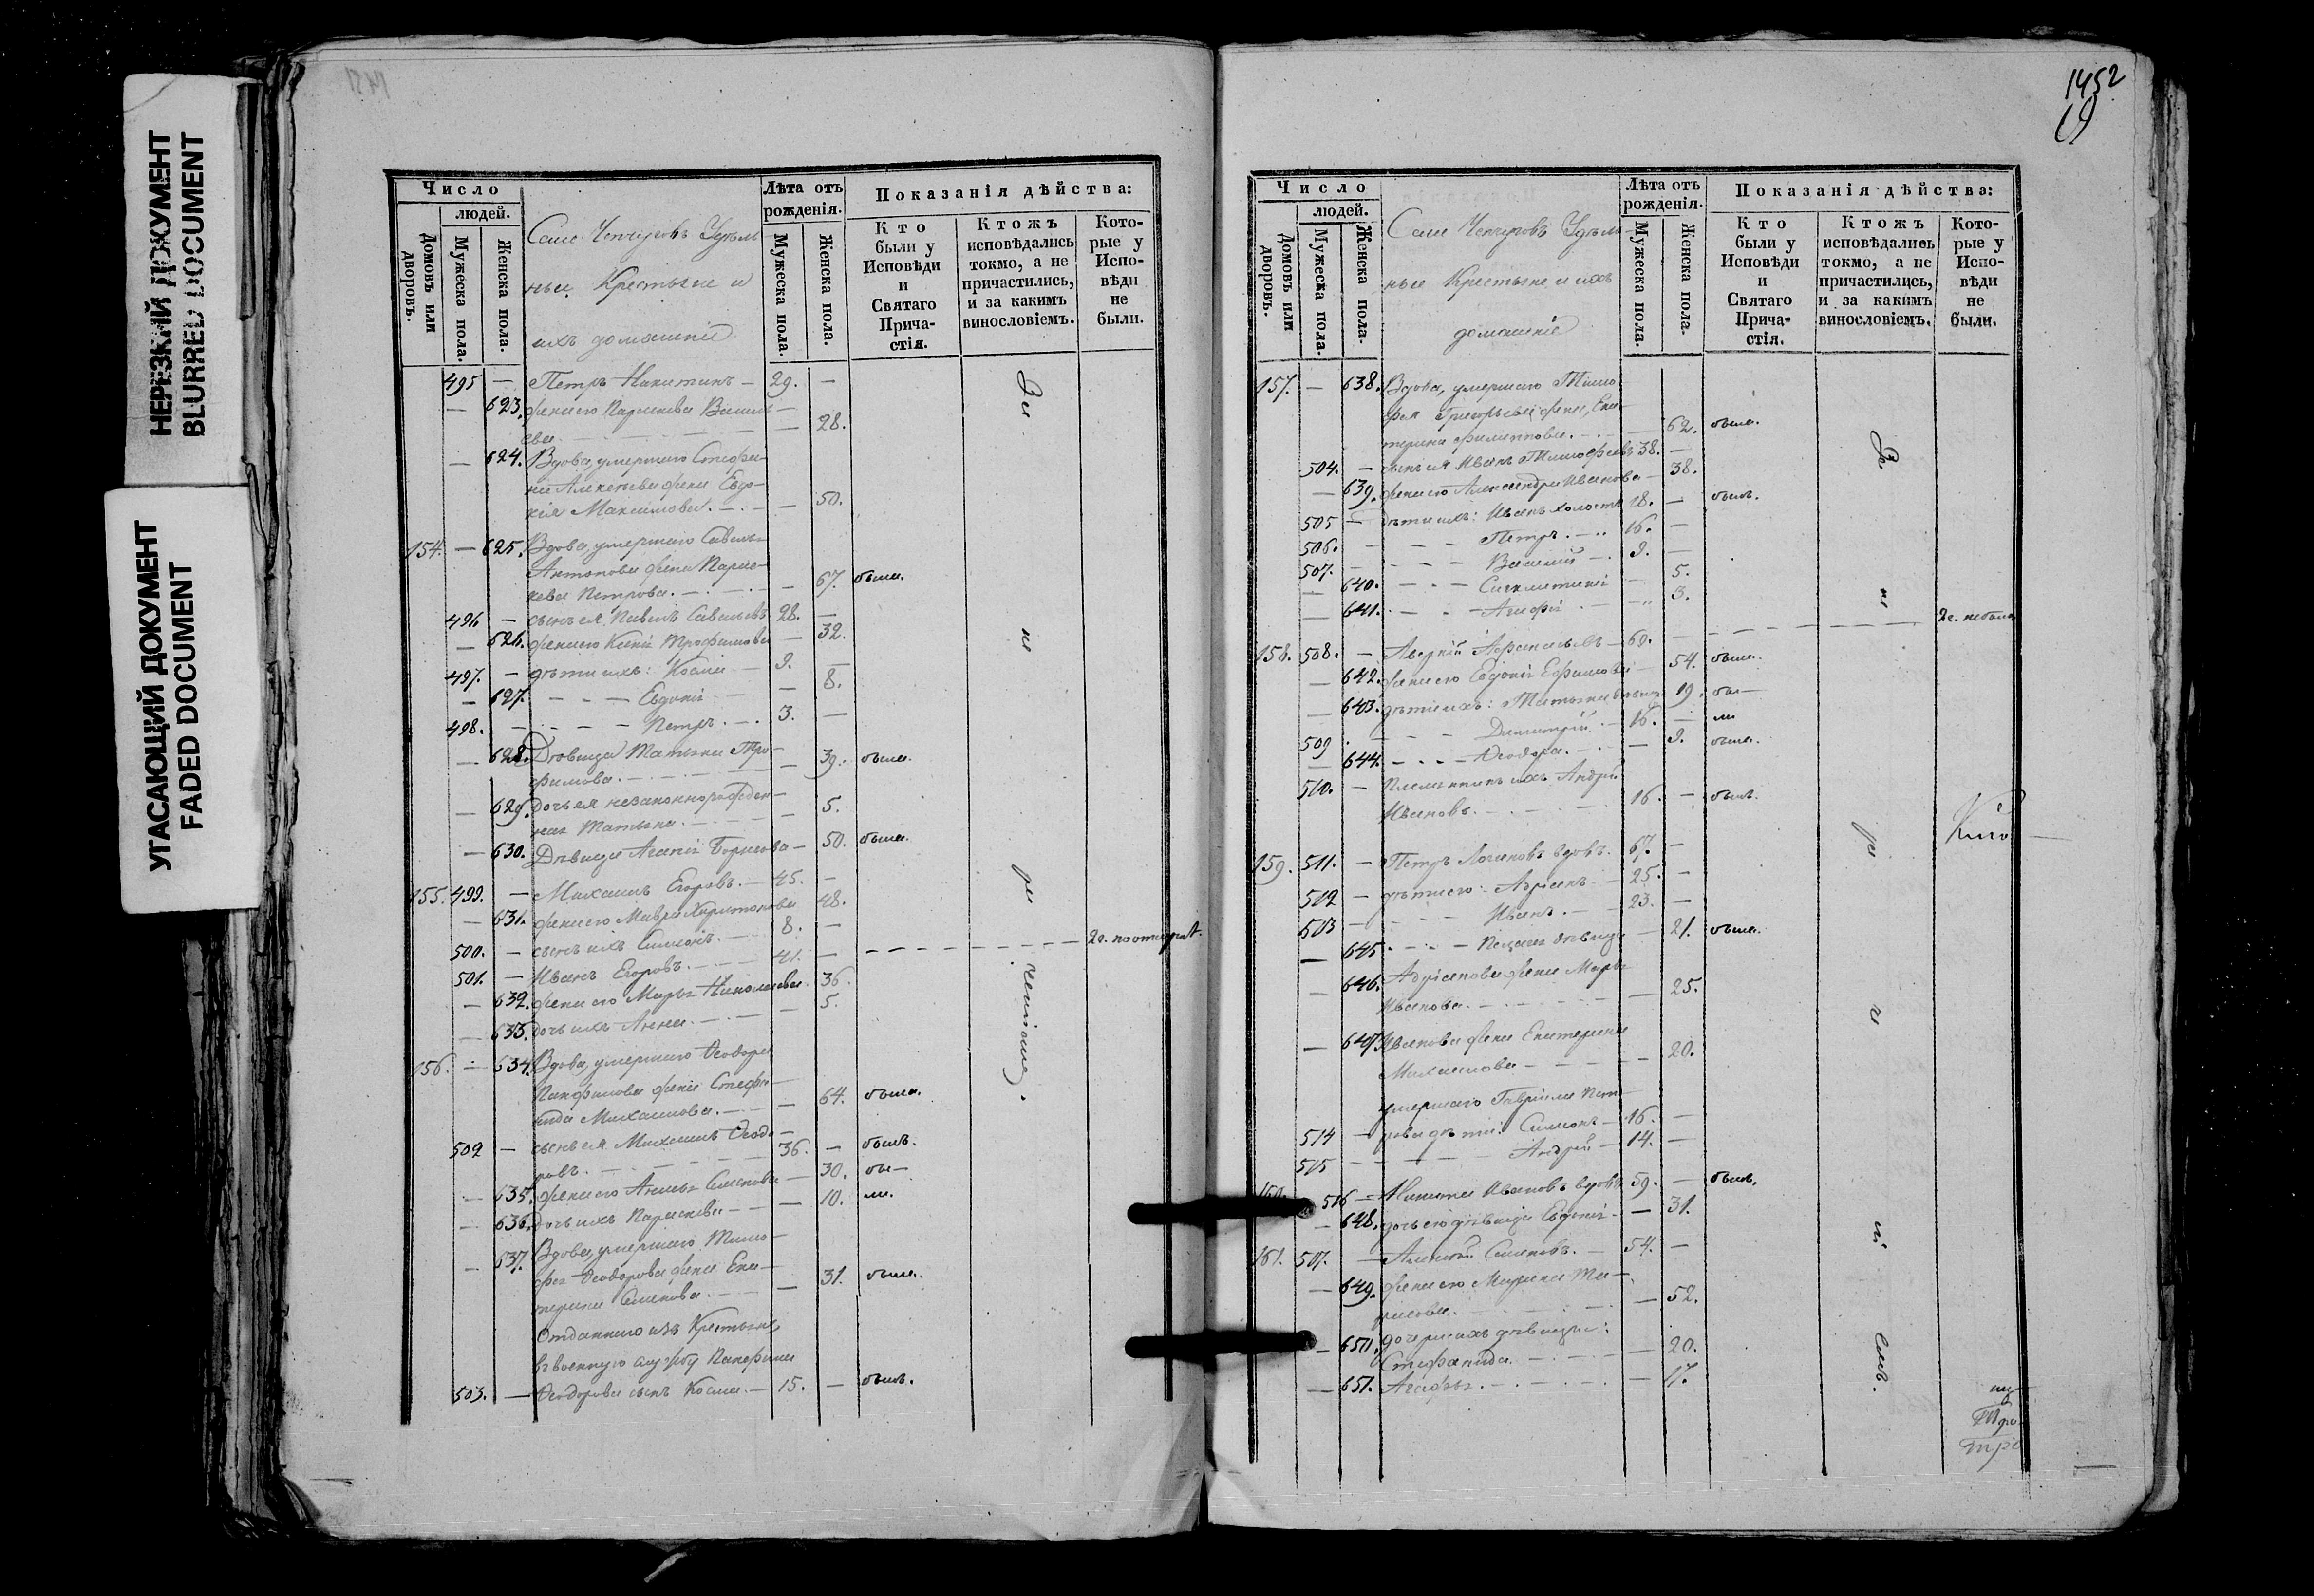 НЕРЕЗКИЙ ДОКУМЕНТ
BLURRED DOCUMENT
УГАСАЮЩИЙ ДОКУМЕНТ
FADED DOCUMENT
Число
людей.
Домовъ или дворовъ.
Мужеска пола.
Женска пола.
Села Чепчуговъ Удѣль-
ные Крестьяне и
ихъ домашніе
Лѣта отъ рожденія.
Мужеска пола.
Женска пола.
Показанія дѣйства:
Кто были у Исповѣди и Святаго Причастія.
Ктожъ исповѣдались токмо, а не причастились, и за какимъ винословіемъ.
Которые у Исповѣди не были.
495 — Петръ Никитинъ — 29. —
— 623. жена его Параскева Василь-
ева — 28.
— 624. Вдова, умершаго Стефа-
на Алексѣева жена Евдо-
кія Максимова. — 50.
154. — 625. Вдова, умершаго Савелья
Антонова жена Парас-
кева Петрова. — 67. была.
496 — сынъ ея Павелъ Савельевъ 28. —
— 626. жена его Ксенія Трофимова — 32.
497. — дѣти ихъ: Косма — 9. —
— 627. Евдокія — 8.
498. — Петръ. 3. —
— 628. Дѣвица Татьяна Тро-
фимова. — 39. была.
— 629. дочь ея незаконнорожден-
ная Татьяна. — 5.
— 630. Дѣвица Агапія Борисова — 50. была.
155. 499. — Михаилъ Егоровъ. — 45. —
— 631. жена его Мавра Харитонова 48.
500. — сынъ ихъ Симеонъ. 8. —
501. — Иванъ Егоровъ. 41. —
— 632. жена его Марья Николаева. 36.
— 633. дочь ихъ Анна. — 5.
156. — 634. Вдова, умершаго Ѳеодора
Панфилова жена Стефа-
нида Михаилова. — 64. была.
502 — сынъ ея Михаилъ Ѳеодо-
ровъ. 36. — былъ.
— 635. жена его Анисья Семенова — 30. бы—
— 636. дочь ихъ Параскева — 10. ли.
— 637. Вдова, умершаго Тимо-
фея Ѳеодорова жена Ека-
терина Семенова. — 31. была.
Отданнаго изъ Крестьянъ
въ военную службу Панфила
503. — Ѳеодорова сынъ Косма. — 15. — былъ.
За
не
ра
ченіемъ.
1452
Число
людей.
Домовъ или дворовъ.
Мужеска пола.
Женска пола.
Села Чепчуговъ Удѣль-
ные Крестьяне и ихъ
домашніе
Лѣта отъ рожденія.
Мужеска пола.
Женска пола.
Показанія дѣйства:
Кто были у Исповѣди и Святаго Причастія.
Ктожъ исповѣдались токмо, а не причастились, и за какимъ винословіемъ.
Которые у Исповѣди не были.
157. — 638. Вдова, умершаго Тимо-
фея Григорьева жена, Ека-
терина Филиппова. — 62. была.
504. — сынъ ея Иванъ Тимофеевъ 38. —
— 639. жена его Александра Иванова — 38.
505 — дѣти ихъ: Иванъ холостъ 18. — былъ.
506. — Петръ. 16. —
507. — Василій 9. —
— 640. Синклитикія — 5.
— 641. Агафія — 3.
158. 508. — Аверкій Афанасьевъ — 69. —
— 642. жена его Евдокія Ефимова — 54. была.
— 643. дѣти ихъ: Татьяна 19. бы—
509 Димитрій. 16. — ли
— 644. Ѳеодора. — 9. была.
510. — Племянникъ ихъ Андрей
Ивановъ. 16. — былъ.
159. 511. — Петръ Логиновъ вдовъ. 67. —
512 — дѣти его: Адріанъ. 25. —
513 — Иванъ. 23. —
— 645. Пелагея дѣвица — 21. была.
— 646. Адріанова жена Марья
Иванова. — 25.
— 647. Иванова жена Екатерина
Михаилова — 20.
умершаго Гавріила Пет-
514 — рова дѣти: Симеонъ — 16. —
515 — Андрей — 14. —
160. 516 — Никита Ивановъ вдовъ 59. — былъ.
— 648. дочь его дѣвица Евдокія — 31.
161. 507. — Алексѣй Семеновъ. — 54. —
— 649. жена его Марина
— 52.
— 650. дочери ихъ дѣвицы:
Стефанида. — 20.
— 651. Агафья. — 17.
За
не
ра
че
ні
емъ.